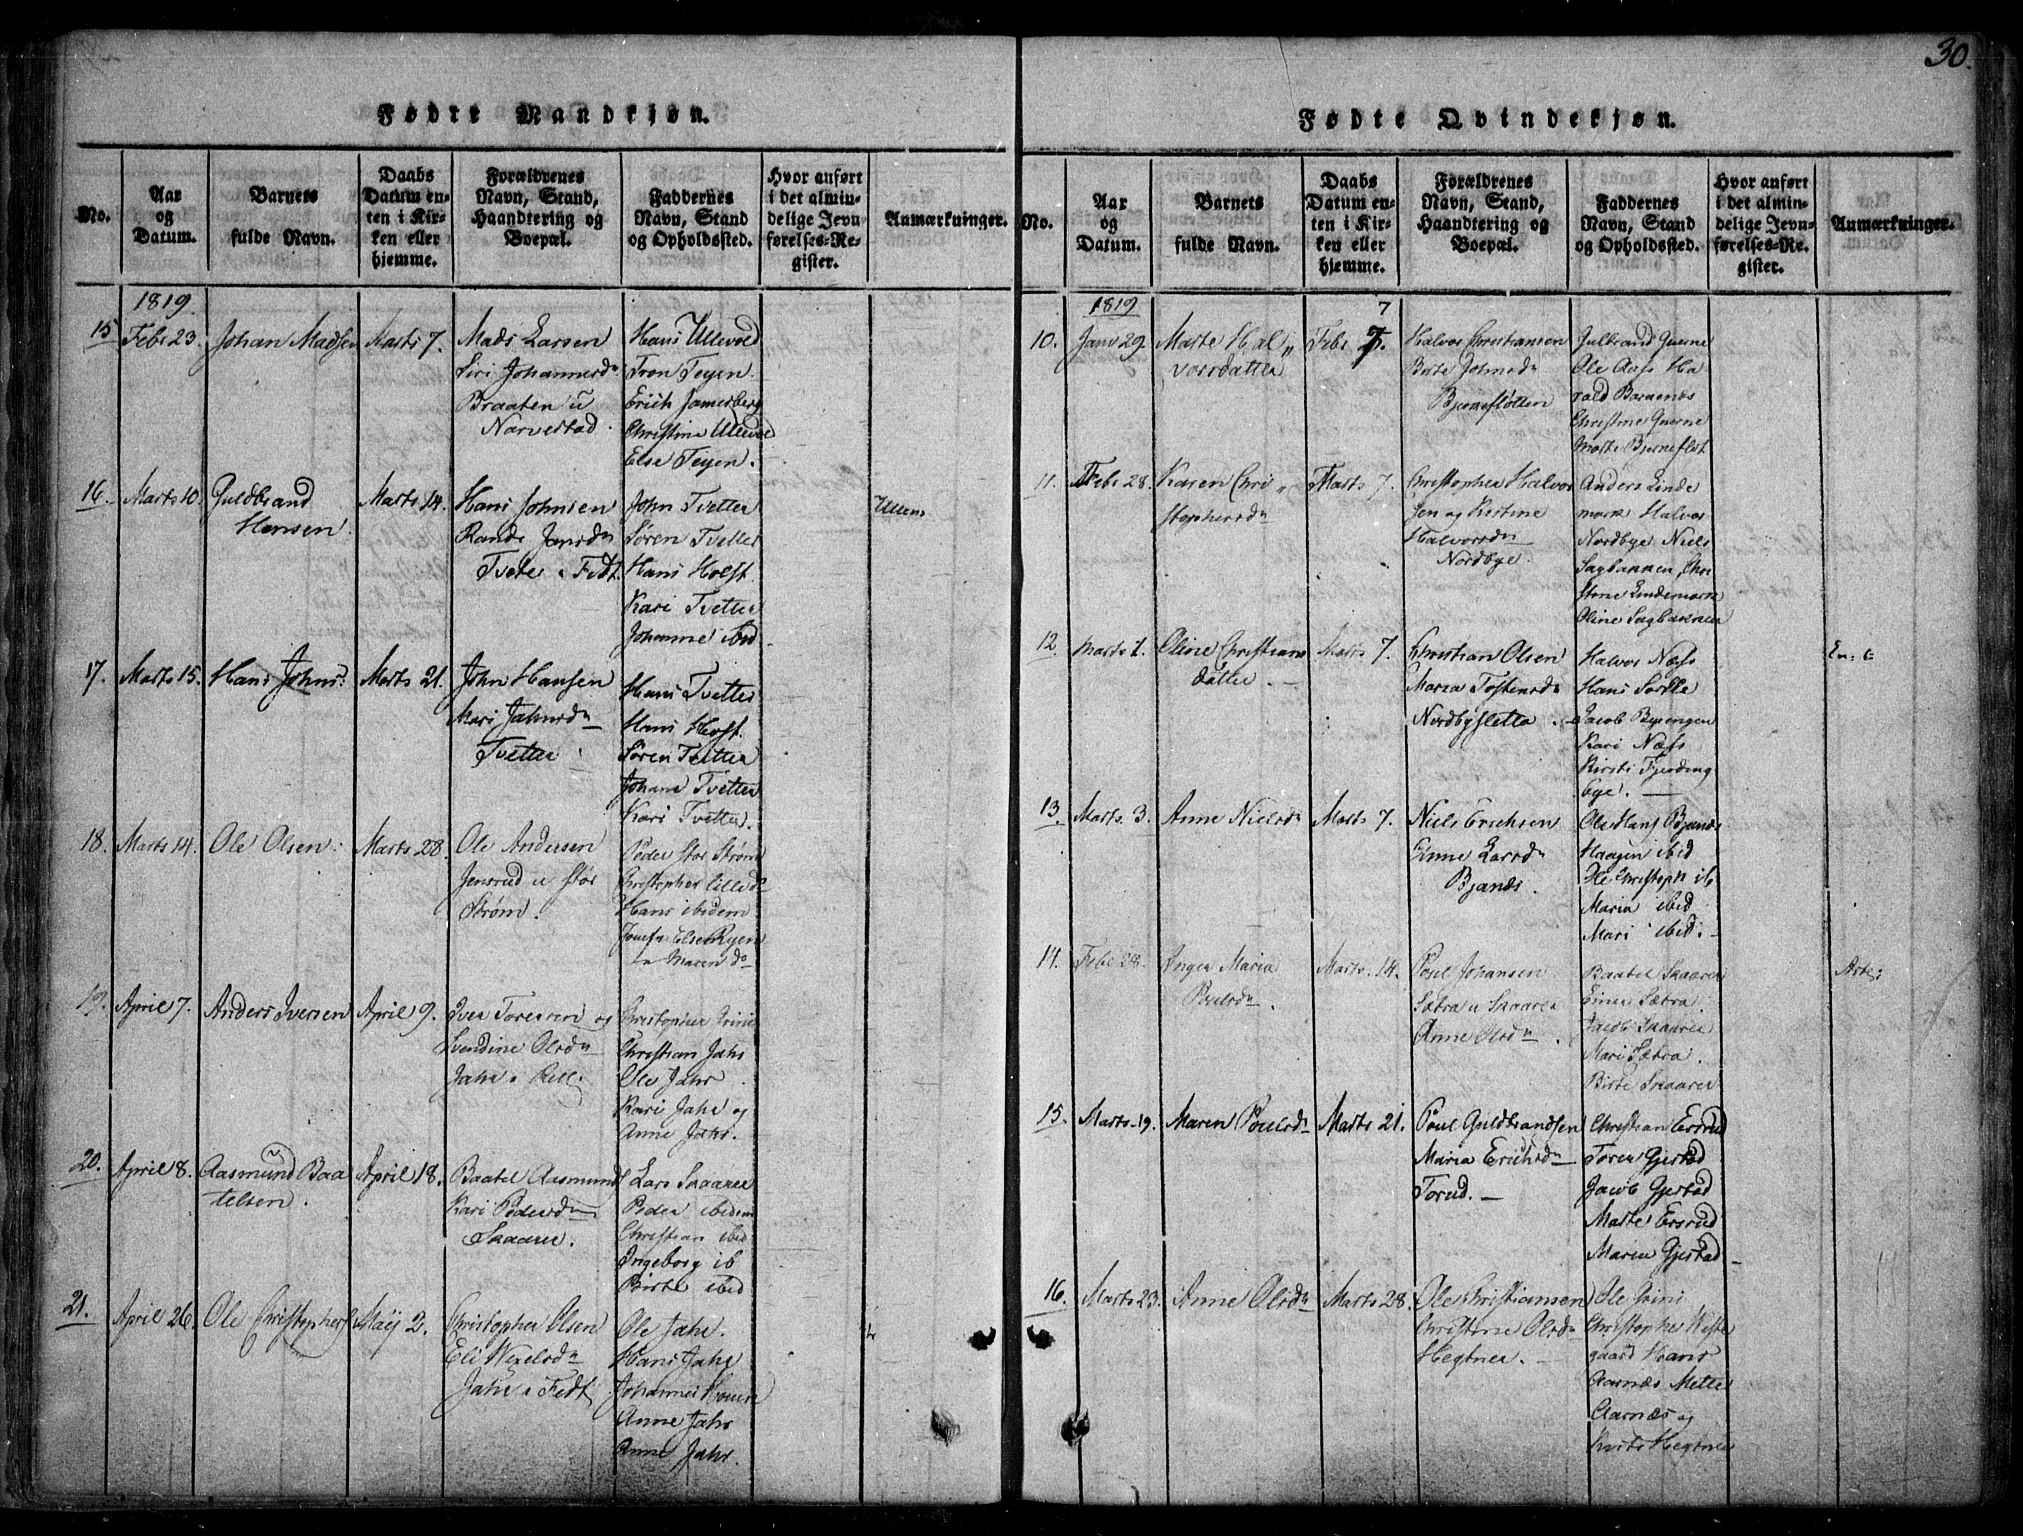 30.
Fødte Mandkjøn.
No.
Aar
og
Datum.
Barnets
fulde Navn.
Daabs
Datum en-
ten i Kir-
ken eller
hjemme.
Forældrenes
Navn, Stand,
Haandtering og
Boepæl.
Faddernes
Navn, Stand
og Opholdssted.
Hvor anført
i det almin-
delige Jevn-
førelses-Re-
gister.
Anmærkninger.
1819.
15 Febr 23. Johan Madsen Marts 7.
Mads Larsen
Siri Johannesdn
Braaten u
Narvestad.
Hans Ullevold
Tron Teyen
Erich Jamerberg
Christine Ullevol
Else Teyen.
16. Marts 10. Guldbrand
Hansen.
Marts 14.
Hans Johnsen
Rande Jansdn
Tvete i Fedt.
John Tvetter
Søren Tvetter
Hans Holst.
Kari Tvetter
Johanne ibid
Ullens
17. Marts 15. Hans Johns: Marts 21.
John Hansen
Mari Jahnsdn
Tvetter
Hans Tvetter
Hans Holst.
Søren Tvetter
Johane Tvetter
Kari Tvetter.
18. Marts 14. Ole Olsen: Marts 28.
Ole Andersen
Jensrud u stor
Strøm.
Peder stor Strøm
Christopher lille do
Hans ibidem
Else Ryen
Maren do
19. April 7. Anders Iversen April 9.
Iver Toresen og
Svendine Olsdn
Jahr
Christopher
Christian Jahr
Ole Jahr
Kari Jahr og
Anne Jahr.
20. April 8. Aasmund Baa
telsen.
April 18.
Baatel Aasmunds
Kari Pedersdn
Skaarer.
Lars Skaarer
Peder ibidem
Christian ibid
Ingeborg ib
Børte ibid
21. April 26. Ole Christophers Maij 2.
Christopher Olsen
Eli Nexelsdn
Jahr i Fedt
Ole Jahr.
Hans Jahr
Johannes
Anne Jahr
Anne Jahr.
Fødte Qvindekjøn.
No.
Aar
og
Datum.
Barnets
fulde Navn.
Daabs
Datum en-
ten i Kir-
ken eller
hjemme.
Forældrenes
Navn, Stand,
Haandtering og
Boepæl.
Faddernes
Navn, Stand
og Opholdssted.
Hvor anført
i det almin-
delige Jevn-
førelses-Re-
gister.
Anmærkninger.
1819
7
10. Janv 29. Marte Hal„
vorsdatter
Febr 7.
Halvor Christiansen
Birte Johnsdn
Bjerneflotten
Gulbrand Guerne
Ole Aas Ha
rald Barnenes
Christine Guerne
Marte Bjerneflot
11. Febr 28. Karen Chri„
stophersdn
Marts 7.
Christopher Halvor
sen og Kirstine
Halvorsdn
Nordbye.
Anders Linde
mark Halvor
Nordbye Niels
Sagbakken, Chri
stine Lindemark
Oline Sagbakken
12. Marts 1. Oline Christians
datter.
Marts 7.
Christian Olsen
Maria Tostensdn
Nordbysletta.
Halvor Næss
Hans Sordle
Jacob Byeengen
Kari Næss
Kirsti Fjerding
bye.
13. Marts 3. Anne Nielsdn Marts 7.
Niels Erichsen
Anne Larsdn
Bjanes.
Ole Hans Bjanes
Haagen ibid
Ole Christoph ib
Maria ibid
Mari ibid.
14. Febr 24. Inger Maria
Poulsdn.
Marts 14.
Poul Johansen
Sætra u Skaarer
Anne Olsdn.
Baatel Skaarer
Einer Sætra
Jacob Skaarer
Mari Sætra.
Birte Skaarer
15. Marts 19. Maren Poulsdn Marts 21.
Poul Guldbrandsen
Maria Erichsdn
Torud.
Christian Ersrud
Toren Gjerstad
Jacob Gjestad
Marte Ersrud
Maren Gjestad
16. Marts 23. Anne Olsdn Marts 28.
Ole Christiansen
Christine Olsdn
Hegtner.
Ole Grini
Christopher Veste
gaard Hans
Aarnæs Mette
Aarnæs og
Hegtner